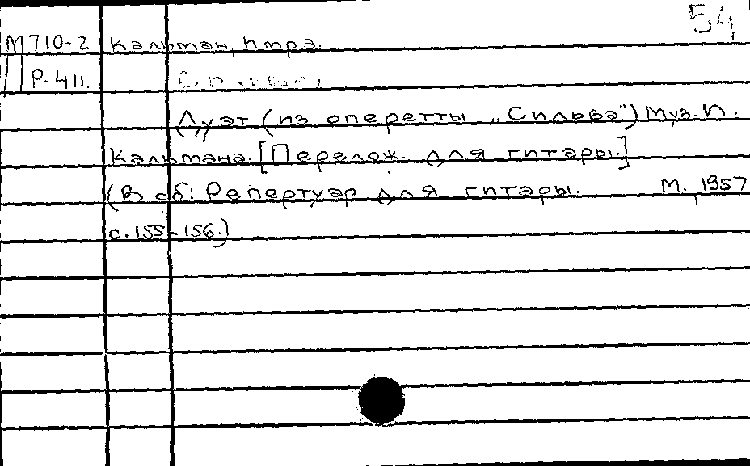 54
М710-2 Кальман, Имре.
Р-411.
Дуэт (из оперетты „Сильва") Муз. И.
Кальмана. [Перелож. для гитары.]
(В сб: Репертуар для гитары. М., 1957
с. 155-156.)